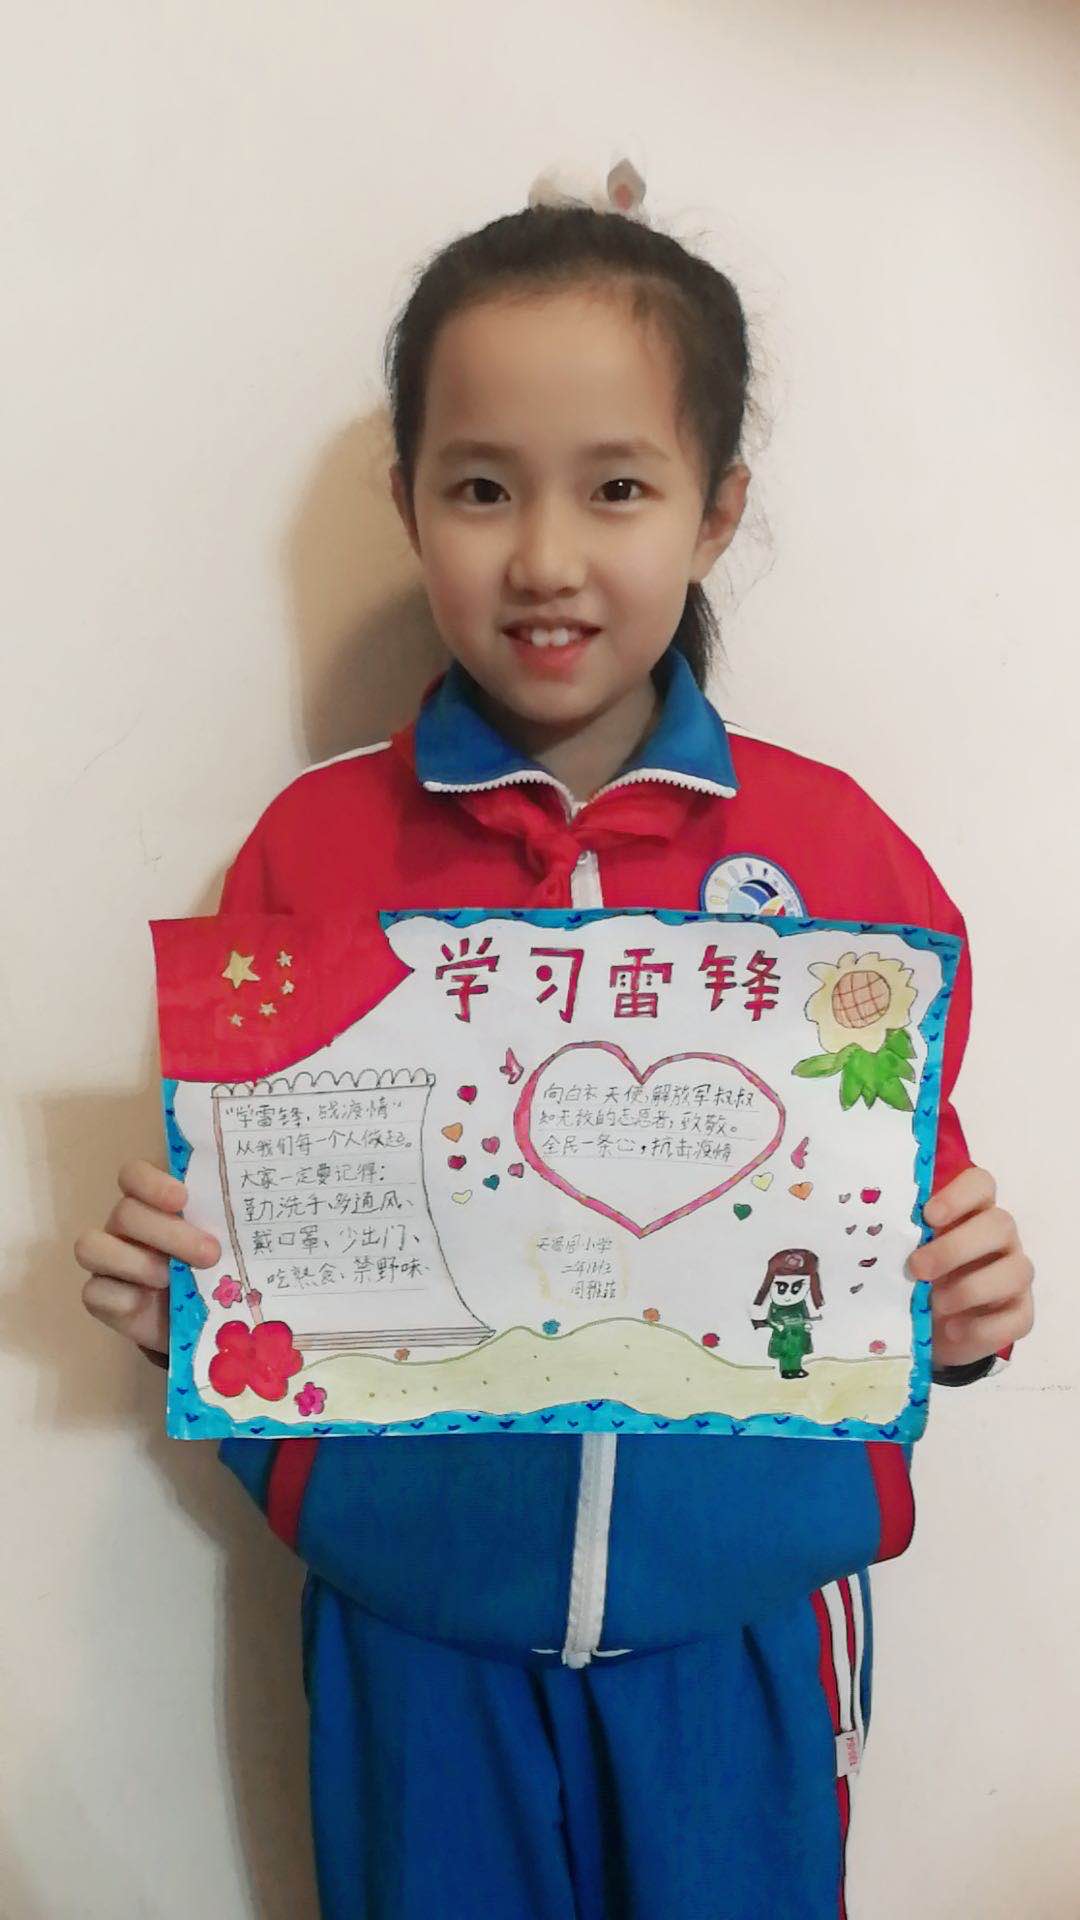 学习雷锋
"学雷锋，战疫情"
从我们每一个人做起。
大家一定要记得：
勤洗手、多通风、
戴口罩、少出门、
吃熟食、禁野味.
向白衣天使，解放军叔叔
知无放的志愿者，致敬。
全民一条心，抗击疫情
小学